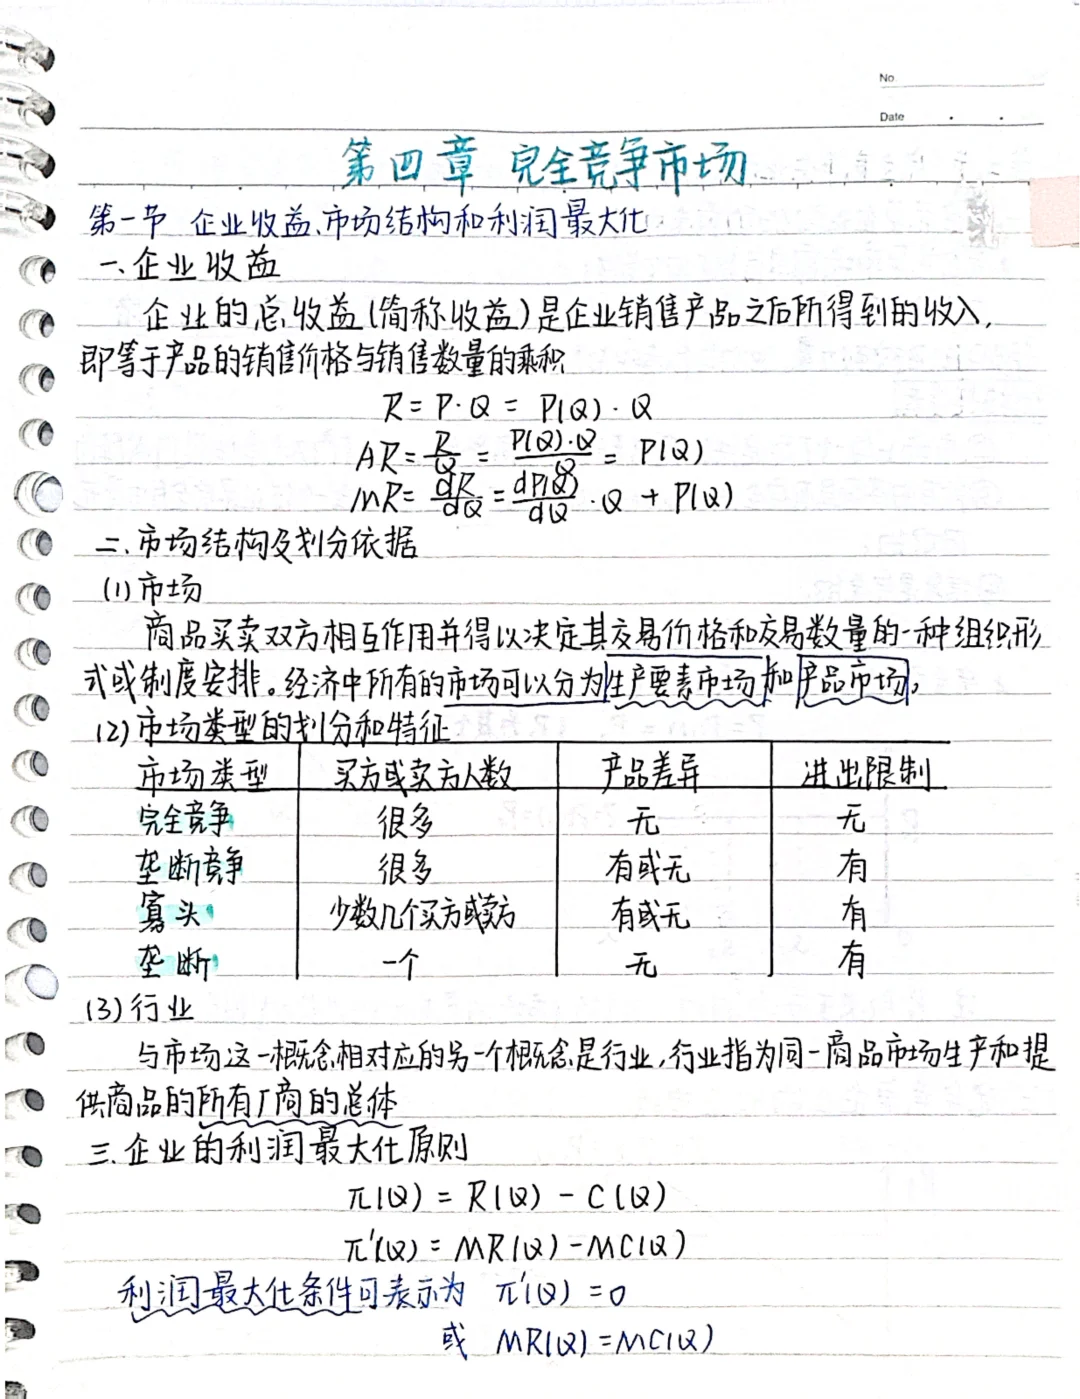 No.
Date
第四章 完全竞争市场
第一节 企业收益、市场结构和利润最大化
一、企业收益
企业的总收益(简称收益)是企业销售产品之后所得到的收入,
即等于产品的销售价格与销售数量的乘积
R = P·Q = P(Q)·Q
AR = R/Q = P(Q)·Q/Q = P(Q)
MR = dR/dQ = dP(Q)/dQ ·Q + P(Q)
二、市场结构及划分依据
(1) 市场
商品买卖双方相互作用并得以决定其交易价格和交易数量的一种组织形
式或制度安排。经济中所有的市场可以分为生产要素市场和产品市场。
(2) 市场类型的划分和特征
市场类型 买方或卖方人数 产品差异 进出限制
完全竞争 很多 无 无
垄断竞争 很多 有或无 有
寡头 少数几个买方或卖方 有或无 有
垄断 一个 无 有
(3) 行业
与市场这一概念相对应的另一个概念是行业,行业指为同一商品市场生产和提
供商品的所有厂商的总体
三、企业的利润最大化原则
π(Q) = R(Q) - C(Q)
π'(Q) = MR(Q) - MC(Q)
利润最大化条件可表示为 π'(Q) = 0
或 MR(Q) = MC(Q)